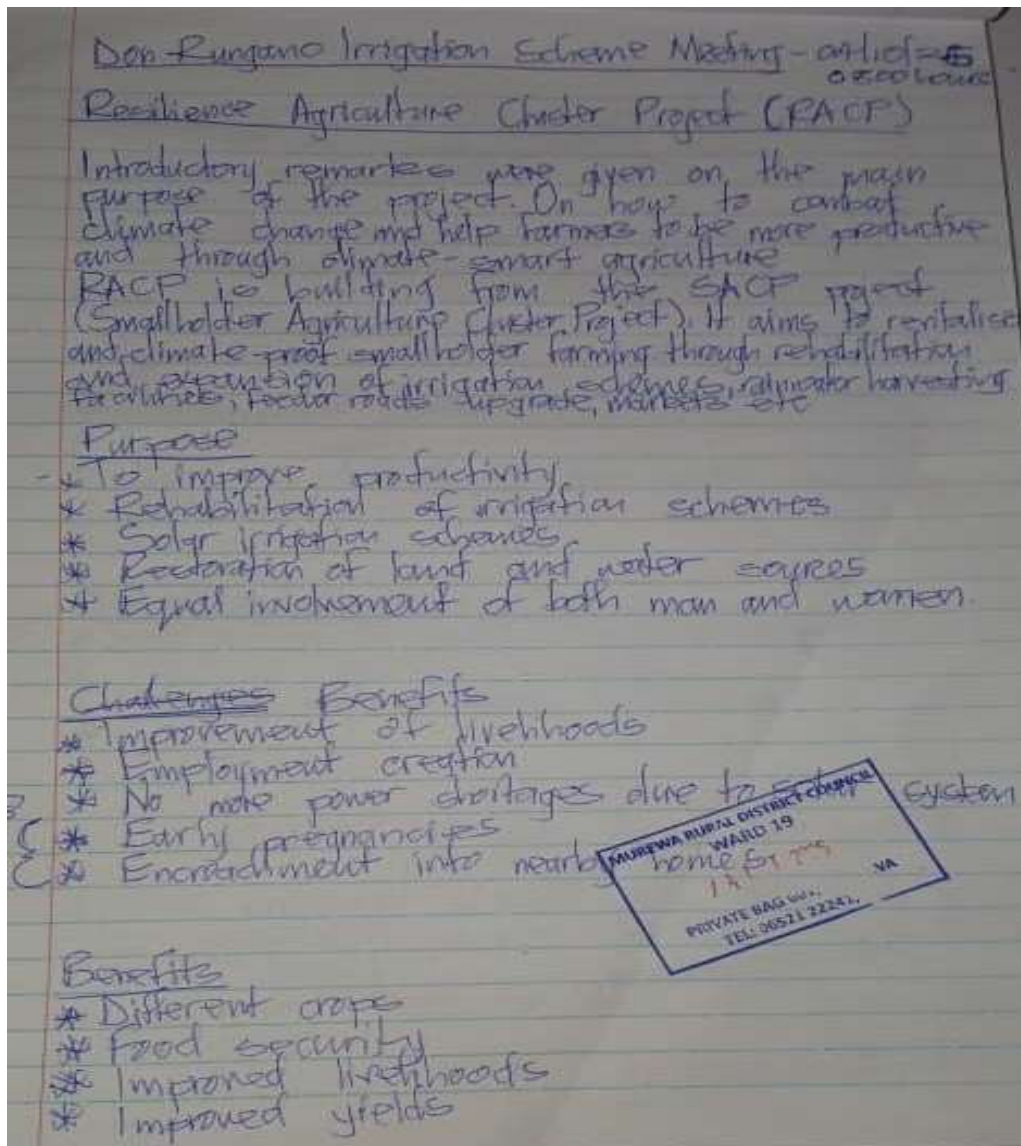 Don Rungano Irrigation Scheme Meeting -
0800 hours
Resilience Agriculture Cluster Project (RACP)
Introductory remarks were given on the main
purpose of the project. On how to combat
climate change and help farmers to be more productive
and through climate-smart agriculture
RACP is building from the SACP project
(Smallholder Agriculture Cluster Project). It aims to revitalise
and climate-proof smallholder farming through rehabilitation
and expansion of irrigation schemes, rainwater harvesting
facilities, feeder roads upgrade, markets etc
Purpose
- * To improve productivity
* Rehabilitation of irrigation schemes
* Solar irrigation schemes
* Restoration of land and water sources
* Equal involvement of both man and women.
Challenges Benefits
* Improvement of livelihoods
* Employment creation
* No more power shortages due to system
* Early pregnancies
* Encroachment into nearby homes
MUREWA RURAL DISTRICT COUNCIL
WARD 19
VA
PRIVATE BAG
TEL: 06521 22241,
Benefits
* Different crops
* Food security
* Improved livelihoods
* Improved yields